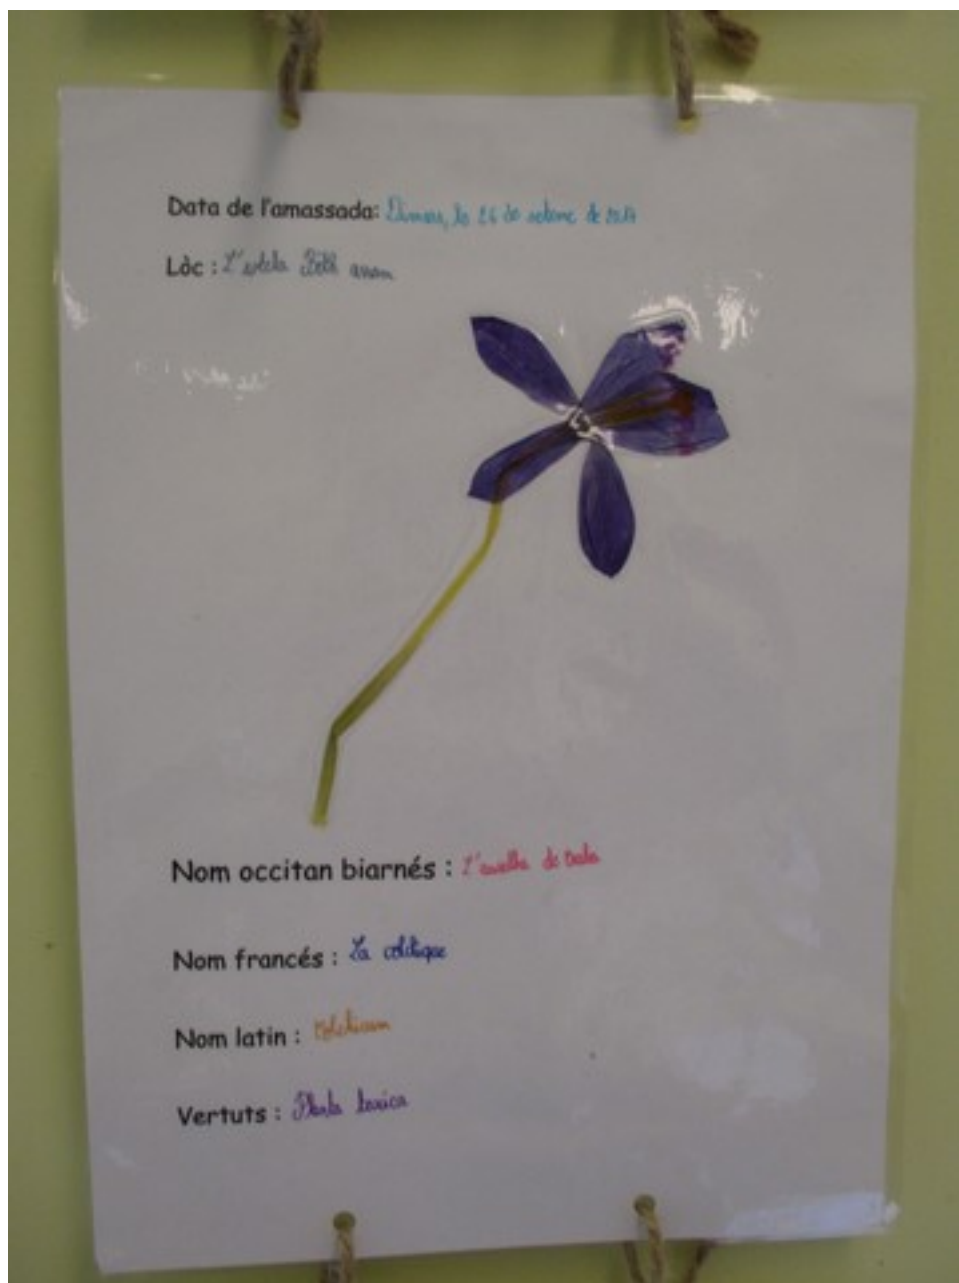 Data de l'amassada: Dimars, lo 26 de seteme de 2017
Lòc : L'estela Bèth arram
Nom occitan biarnés : L'aulha de
Nom francés : La colchique
Nom latin : Colchicum
Vertuts : Planta toxica